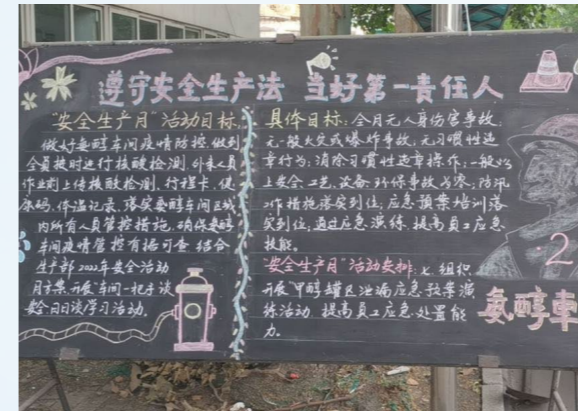 遵守安全生产法 当好第一责任人
"安全生产月"活动目标
做好氨醇车间疫情防控,做到
全员按时进行核酸检测,外来人员
作业前上传核酸检测、行程卡、健
康码、体温记录,落实氨醇车间区域
内所有人员管控措施,确保氨醇
车间疫情管控有据可查 结合
生产部2022年安全活动
月方案,开展车间一把手谈
安全日日谈学习活动。
具体目标:全月无人身伤害事故,
无一般火灾或爆炸事故,无习惯性违
章行为;消除习惯性违章操作;一般以
上安全、工艺、设备、环保事故为零;防汛
工作措施落实到位,应急预案培训落
实到位,通过应急演练,提高员工应急
技能。
"安全生产月"活动安排:七.组织
开展甲醇罐区泄漏应急预案演
练活动,提高员工应急处置能
力。
·2
氨醇車